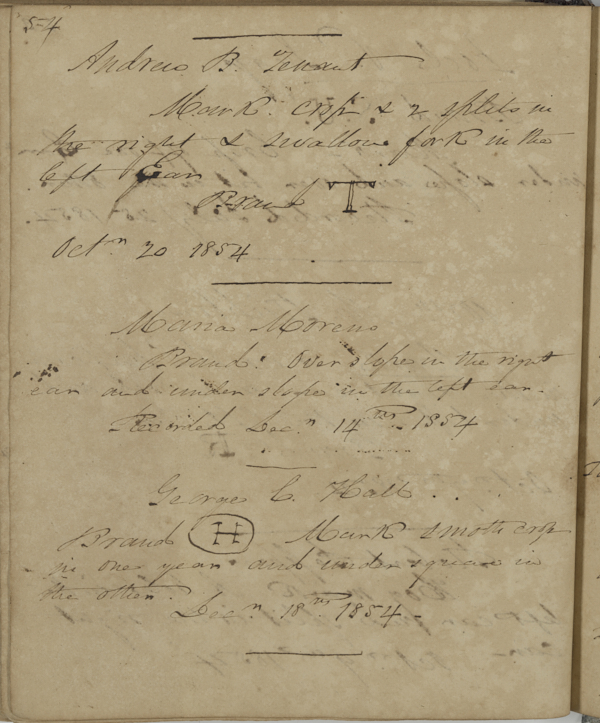 54
Andrew B. Tenant
Mark: crop & 2 splits in
the right & swallow fork in the
left Ear
Brand T
Octr 20 1854
Maria Moreno
Brand: Over slope in the right
ear and under slope in the left ear.
Recorded Decr 14th 1854
George C. Hall
Brand H Mark smooth crop
in one year and under square in
the other.
Decr 18th 1854